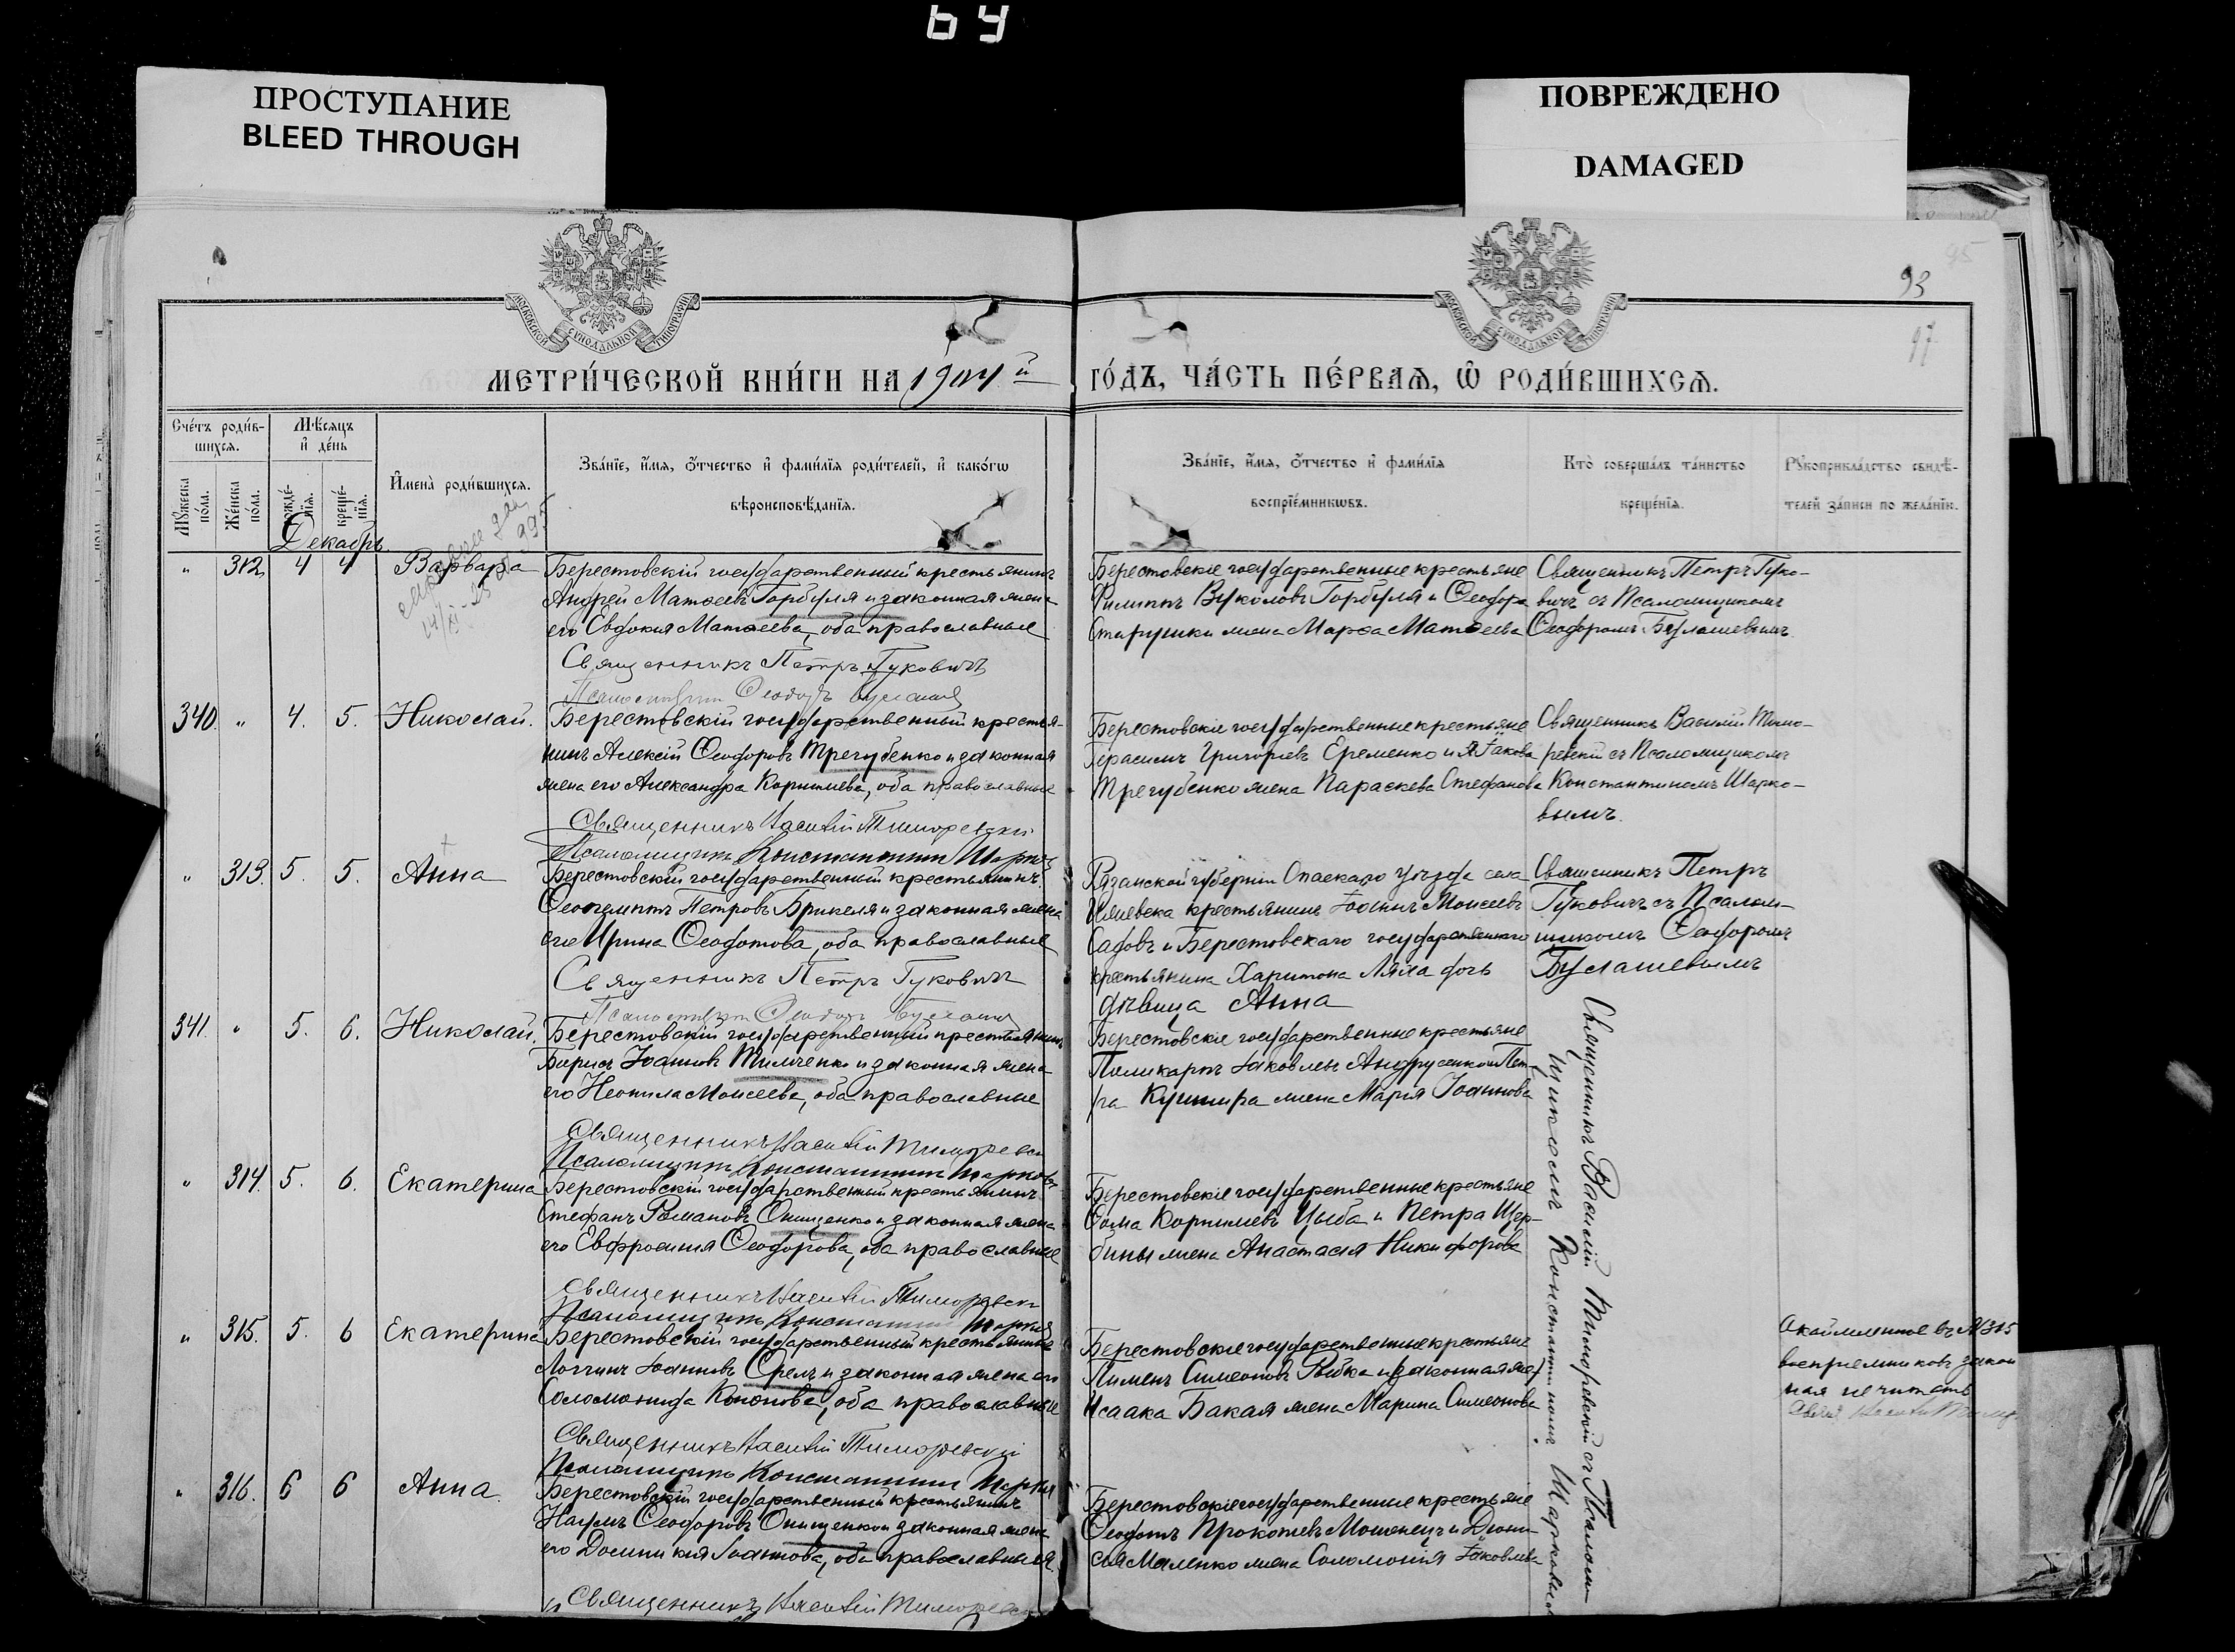 64
ПРОСТУПАНИЕ
BLEED THROUGH
ПОВРЕЖДЕНО
DAMAGED
МОСКОВСКОЙ СѴНОДАЛЬНОЙ ТИПОГРАФІИ
МОСКОВСКОЙ СѴНОДАЛЬНОЙ ТИПОГРАФІИ
95
93
97
МЕТРИ́ЧЕСКОЙ КНИ́ГИ НА 1904й ГО́ДЪ, ЧА́СТЬ ПЕ́РВАѦ, Ѡ РОДИ́ВШИХСѦ.
Сче́тъ роди́вшихсѧ.
Мꙋ́жеска по́ла.
Же́нска по́ла.
Мѣ́сѧцъ и҆ де́нь
рожде́нїѧ.
креще́нїѧ.
И҆мена̀ роди́вшихсѧ.
Зва́нїе, и҆́мѧ, ѻ҆́тчество и҆ фами́лїѧ роди́телей, и҆ како́гѡ
вѣроисповѣ́данїѧ.
Зва́нїе, и҆́мѧ, ѻ҆́тчество и҆ фами́лїѧ
воспрїе́мникѡвъ.
Кто̀ соверша́лъ та́инство
креще́нїѧ.
Рꙋкоприкла́дство свидѣ́-
телей за́писи по жела́нїю.
Декабрь
" 312 4 4 Варвара
Берестовскій государственный крестьянинъ
Андрей Матѳеевъ Горбуля и законная жена
его Евдокия Матѳеева, оба православные
Священникъ Петръ Гуковичъ
Берестовскіе государственные крестьяне
Филиппъ Вуколовъ Горбуля и Ѳеодора
жена Марѳа Матѳеева
Священникъ Петръ Гуко-
вичъ съ Псаломщикомъ
Ѳеодоромъ Буслашевымъ
340. " 4. 5. Николай.
Берестовскій государственный крестья-
нинъ Алексій Ѳеодоровъ Трегубенко и законная
жена его Александра Корнилиева, оба православные
Священникъ Василій Тиморевскій
Псаломщикъ Константинъ Шарковъ
Берестовскіе государственные крестьяне
Герасимъ Григорьевъ Еременко и Іакова
Трегубенко жена Параскева Стефанова
Священникъ Василій Тимо-
ревскій съ Псаломщикомъ
Константиномъ Шарко-
вымъ.
" 313. 5. 5. Анна
Берестовскій государственный крестьянинъ
Ѳеогемптъ Петровъ Брикеля и законная жена
его Ирина Ѳеодотова, оба православные
Священникъ Петръ Гуковичъ
Рязанской губерніи Спаскаго уѣзда села
крестьянинъ Іоаннъ Моисеевъ
Садовъ и Берестовскаго государственнаго
крестьянина Харитона Ляха дочь
дѣвица Анна
Священникъ Петръ
Гуковичъ съ Псалом-
щикомъ Ѳеодоромъ
Буслашевымъ
341. " 5. 6. Николай.
Берестовскій государственный крестьянинъ
Борисъ Іоанновъ Тимченко и законная жена
его Неонила Моисеева, оба православные
Священникъ Василій Тиморевскій
Псаломщикъ Константинъ Шарковъ
Берестовскіе государственные крестьяне
Поликарпъ Іаковлевъ Андрусенко и Пет-
ра Кушнира жена Марія Іоаннова
Священникъ Василій Тиморевскій съ Псалом-
щикомъ Константиномъ Шарковымъ
" 314. 5. 6. Екатерина
Берестовскій государственный крестьянинъ
Стефанъ Романовъ Онищенко и законная жена
его Евфросинія Ѳеодорова, оба православные
Священникъ Василій Тиморевскій
Псаломщикъ Константинъ Шарковъ
Берестовскіе государственные крестьяне
Ѳома Корнилиевъ Цыба и Петра Щер-
бины жена Анастасія Никифорова
" 315. 5. 6 Екатерина
Берестовскій государственный крестьянинъ
Логгинъ Іоанновъ Орелъ и законная жена его
Соломонида Кононова, оба православные
Священникъ Василій Тиморевскій
Псаломщикъ Константинъ Шарковъ
Берестовскіе государственные крестьяне
Пименъ Симеоновъ Рыбка и (законная же)
Исаака Бакая жена Марина Симеонова
Окаймленное въ №315
воспріемниковъ закон
ная не читать
" 316. 6 6 Анна.
Берестовскій государственный крестьянинъ
Наумъ Ѳеодоровъ Онищенко и законная жена
его Домникия Іоаннова, оба православные
Священникъ Василій Тиморевскій
Берестовскіе государственные крестьяне
Ѳеодотъ Прокопіевъ Мошенецъ и Діони-
сія Маленко жена Соломонія Іаковлева